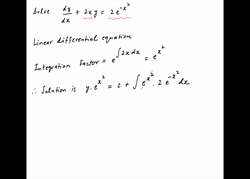 Solve dy/dx + 2xy = 2e^{-x^2}
Linear differential equation
Integration Factor = e^{∫2xdx} = e^{x^2}
∴ Solution is y.e^{x^2} = c + ∫e^{x^2} . 2e^{-x^2} dx